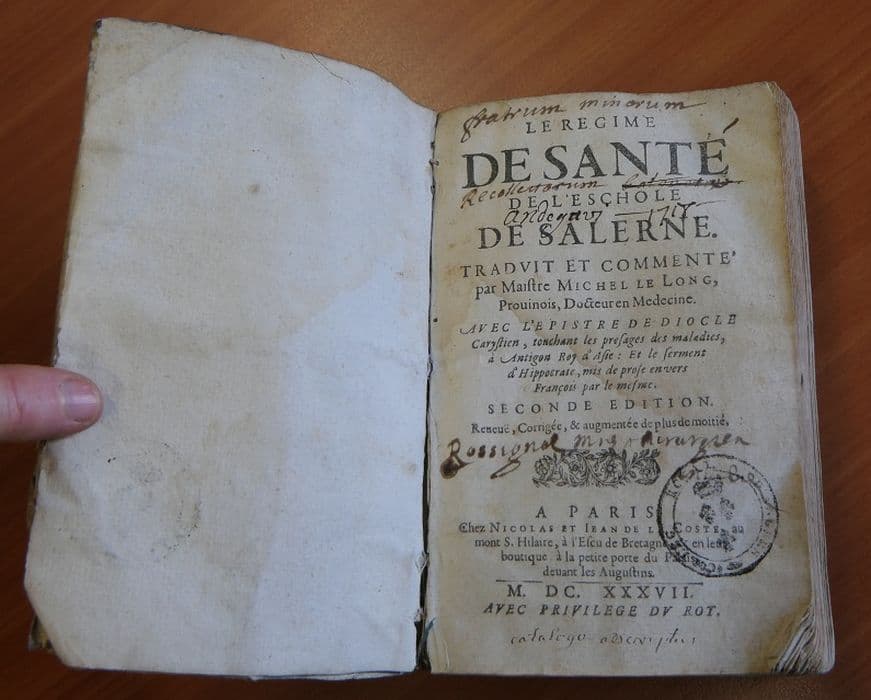 fratrum minorum
LE REGIME
DE SANTÉ
Recollectorum
DE L'ESCHOLE
Andegavi 1715
DE SALERNE.
TRADVIT ET COMMENTÉ
par Maiſtre MICHEL LE LONG,
Prouinois, Docteur en Medecine.
AVEC L'EPISTRE DE DIOCLE
Caryſtien, touchant les preſages des maladies,
à Antigon Roy d'Aſie : Et le ſerment
d'Hippocrate, mis de proſe en vers
François par le meſme.
SECONDE EDITION.
Reueuë, Corrigée, & augmentée de plus de moitié,
Rossignol chirurgien
A PARIS
Chez NICOLAS ET IEAN DE LA COSTE, au
mont S. Hilaire, à l'Eſcu de Bretagne, en leur
boutique à la petite porte du Palais
deuant les Auguſtins.
M. DC. XXXVII.
AVEC PRIVILEGE DV ROY.
catalogo adscriptus